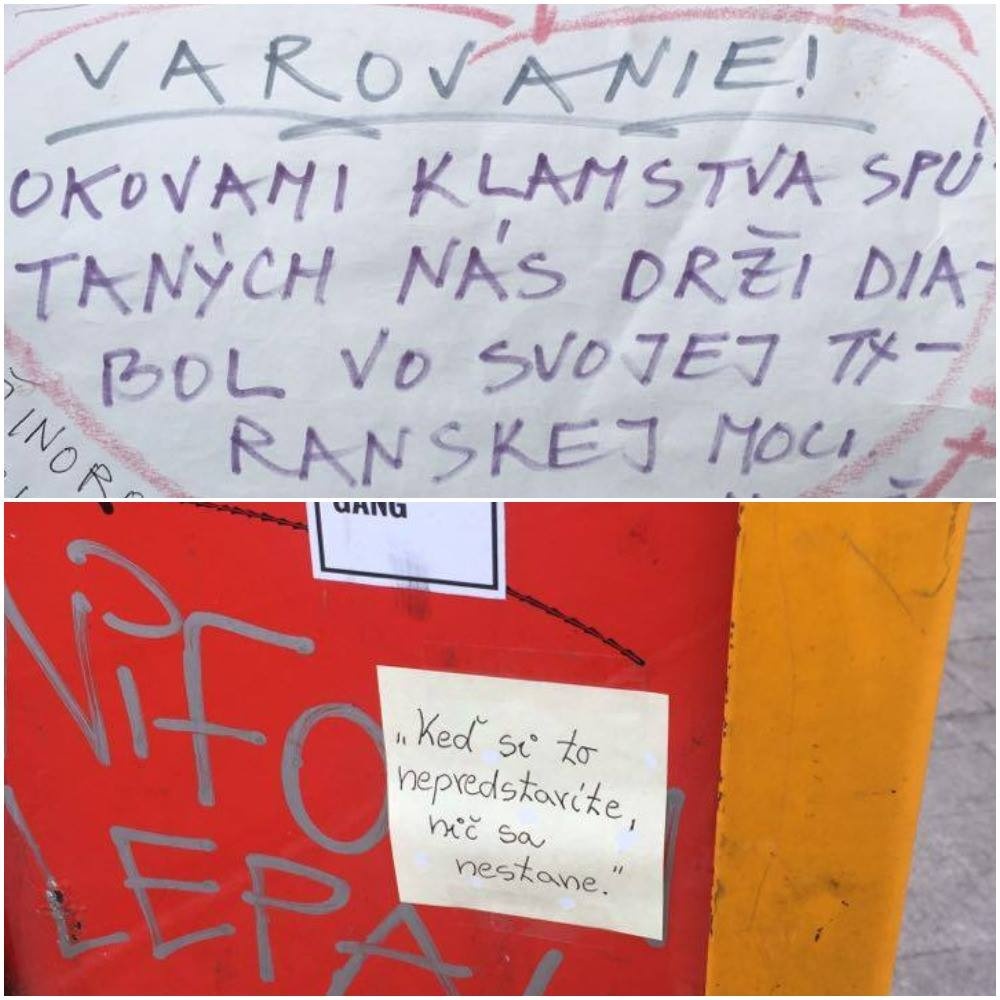 VAROVANIE!
OKOVAMI KLAMSTVA SPÚ-
TANÝCH NÁS DRŽÍ DIA-
BOL VO SVOJEJ TY-
RANSKEJ MOCI.
GANG
VIFO
LEPA
„Keď si to
nepredstavíte,
nič sa
nestane."